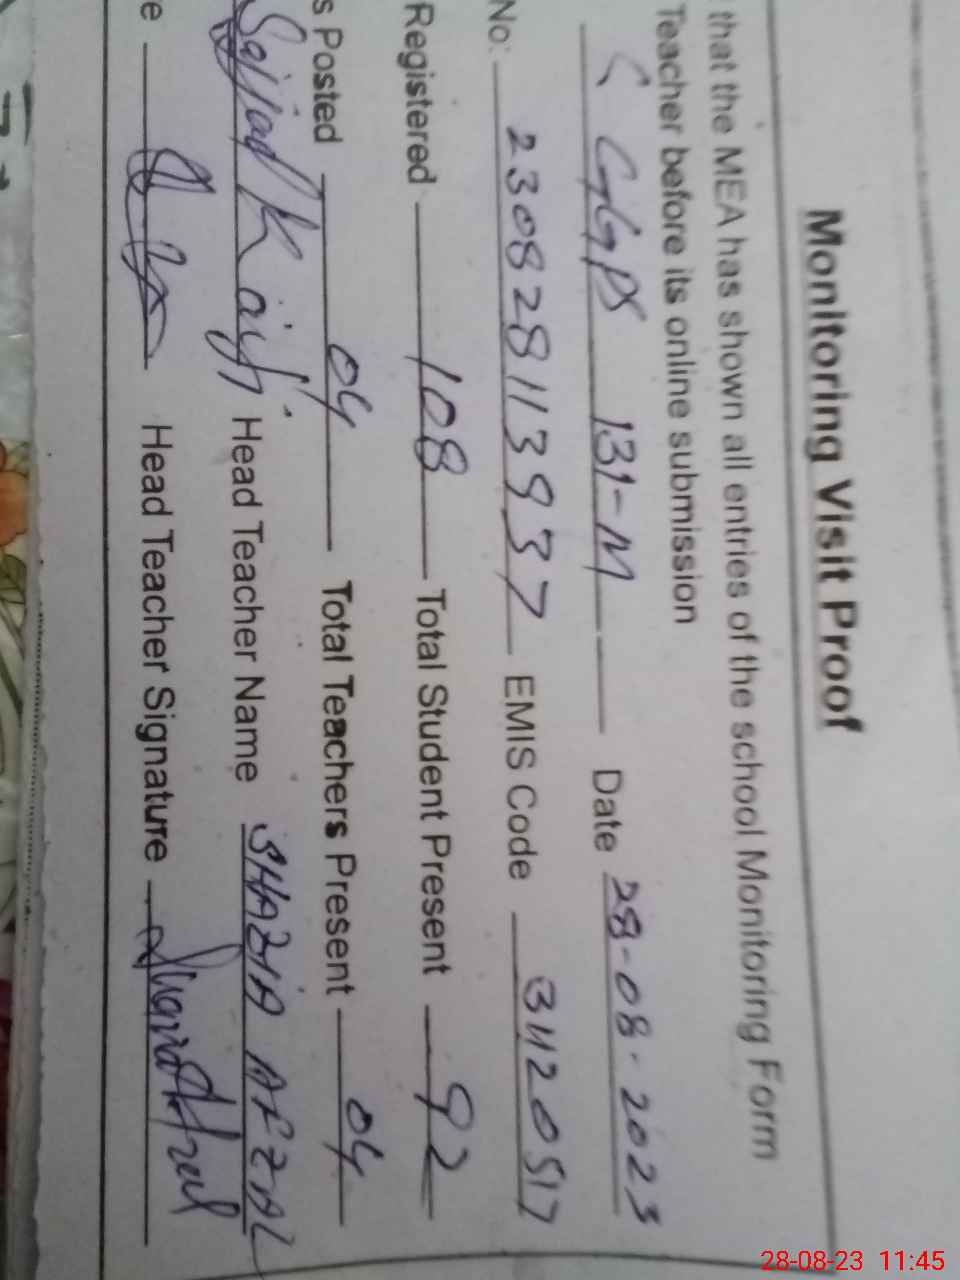 Monitoring Visit Proof
that the MEA has shown all entries of the school Monitoring Form
Teacher before its online submission
GGPS 131-M Date 28-08-2023
No: 230828113937 EMIS Code 31120517
Registered 108 Total Student Present 92
s Posted 04 Total Teachers Present 04
Sajjad Kaif Head Teacher Name SHAZIA AFZAL
e Head Teacher Signature
28-08-23 11:45